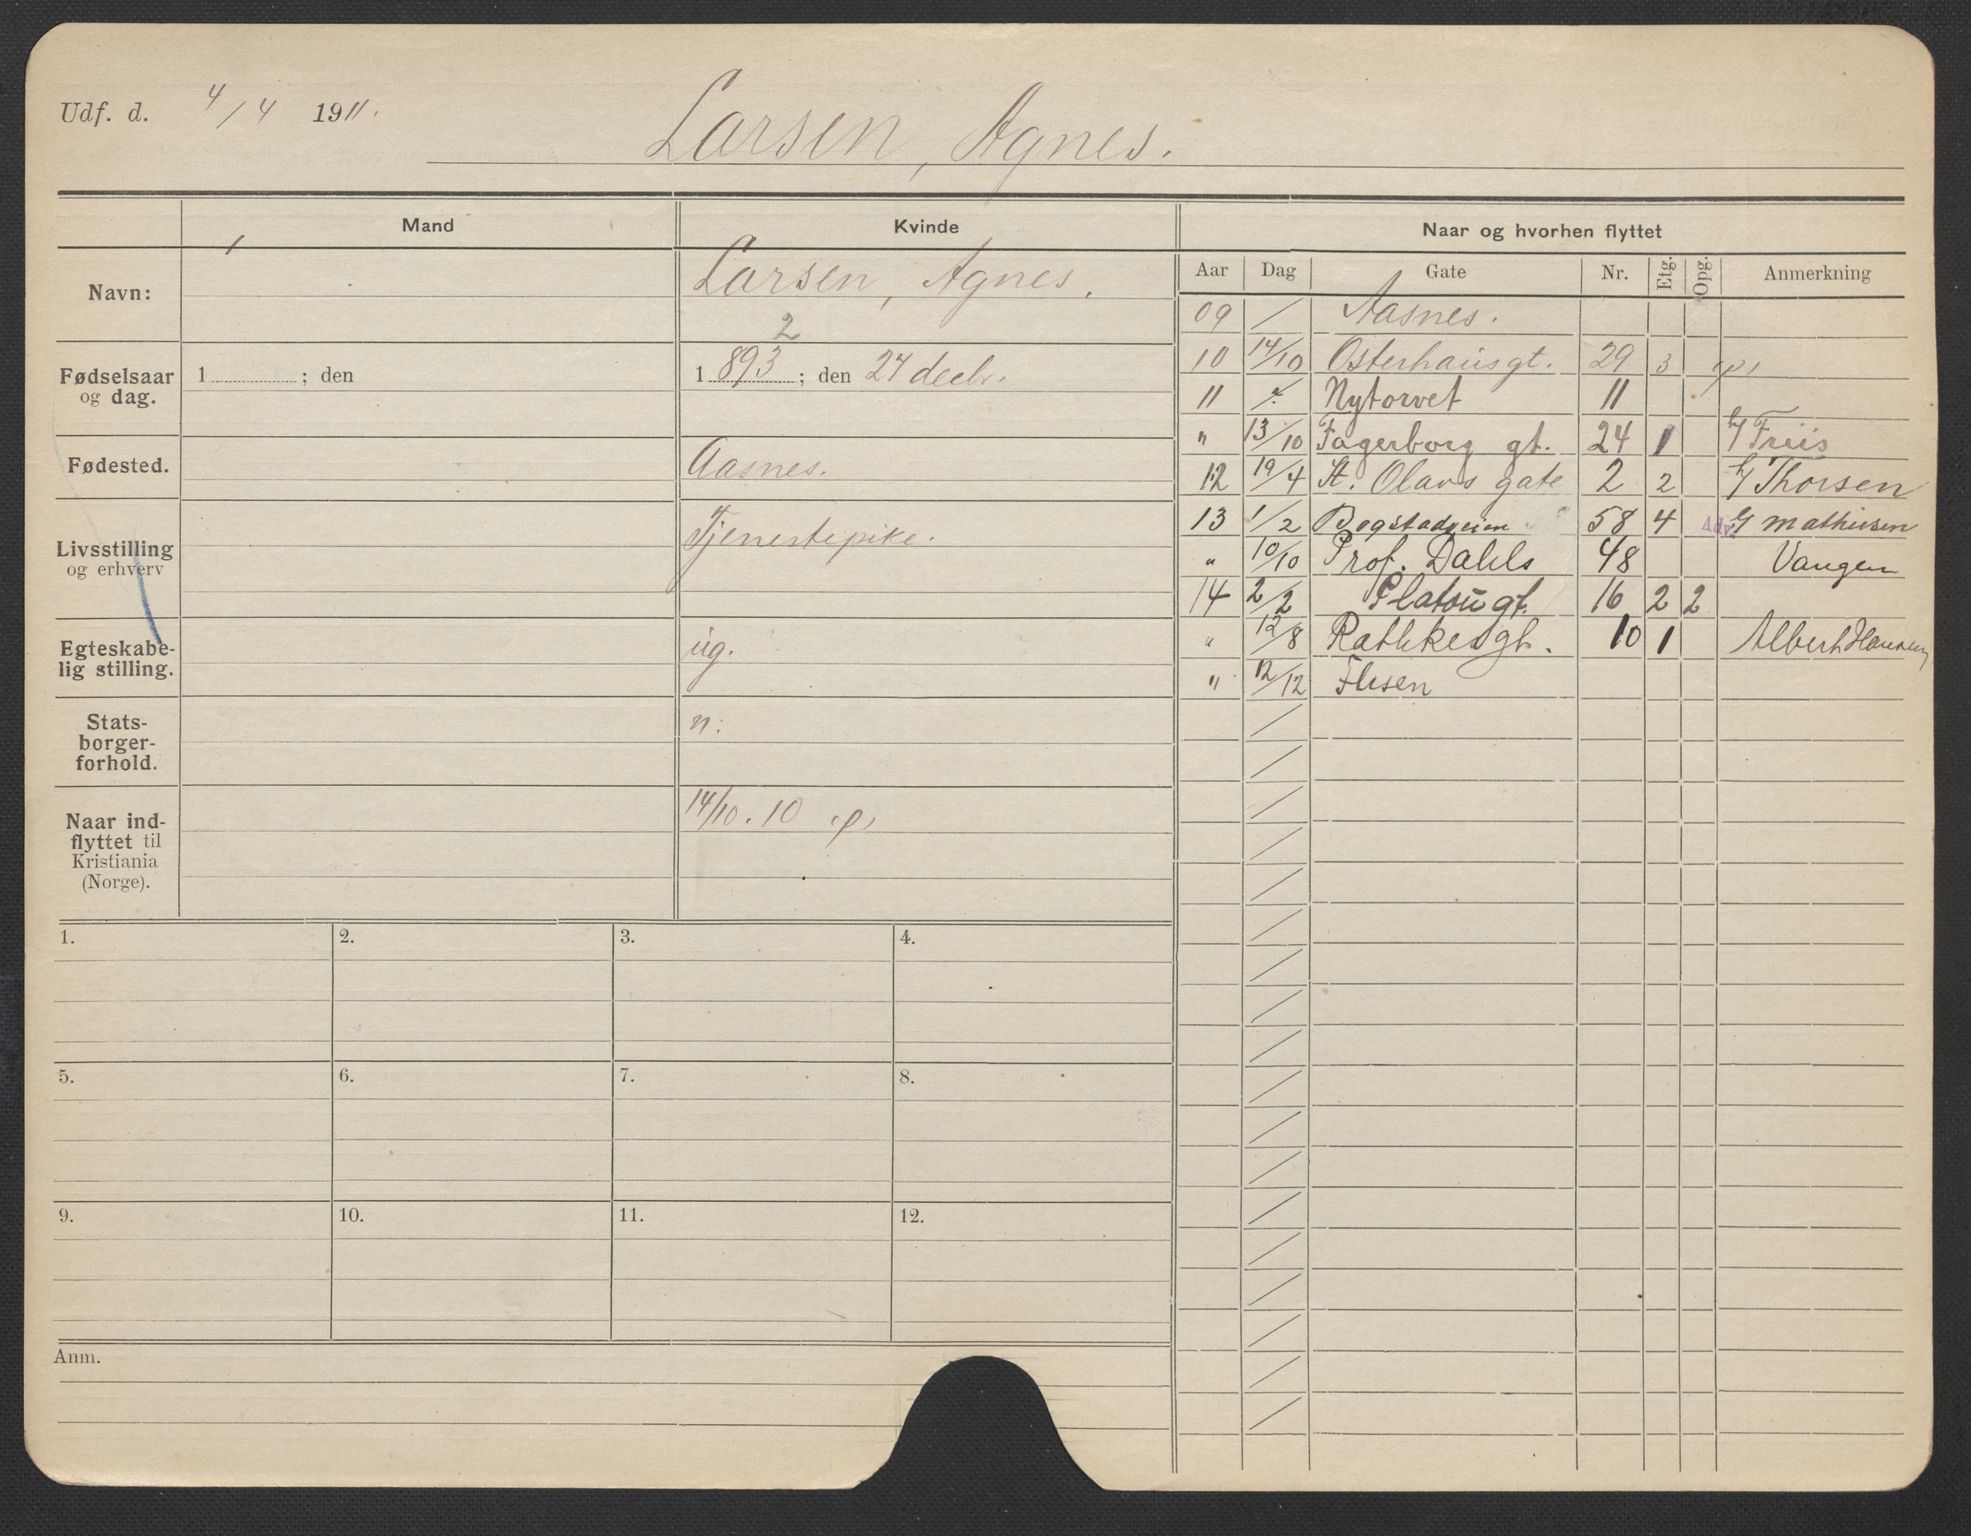 Udf. d. 4/4 1911.
Larsen, Agnes.
Mand
Kvinde
Naar og hvorhen flyttet
Navn:
Larsen, Agnes.
2
Fødselsaar og dag.
1 ; den
1893 ; den 27 decbr.
Fødested.
Aasnes.
Livsstilling og erhverv
Tjenestepike.
Egteskabe-
lig stilling.
ug.
Stats-
borger-
forhold.
n.
Naar ind-
flyttet til
Kristiania
(Norge).
14/10. 10 p,
Aar Dag Gate Nr. Etg. Opg. Anmerkning
09 / Aasnes.
10 14/10 Osterhausgt. 29 3 p,
11 / Nytorvet 11
" 13/10 Fagerborg gt. 24 1 h/ Friis
12 19/4 St. Olavs gate 2 2 h/ Thorsen
13 1/2 Bogstadveien 58 4 Adv. h/ Mathiesen
" 10/10 Prof. Dahls 48 Vangen
14 2/2 Platougt. 16 2 2
" 12/8 Rathkesgt. 10 1 Albert Hansen
" 12/12 Flisen
1.
2.
3.
4.
5.
6.
7.
8.
9.
10.
11.
12.
Anm.